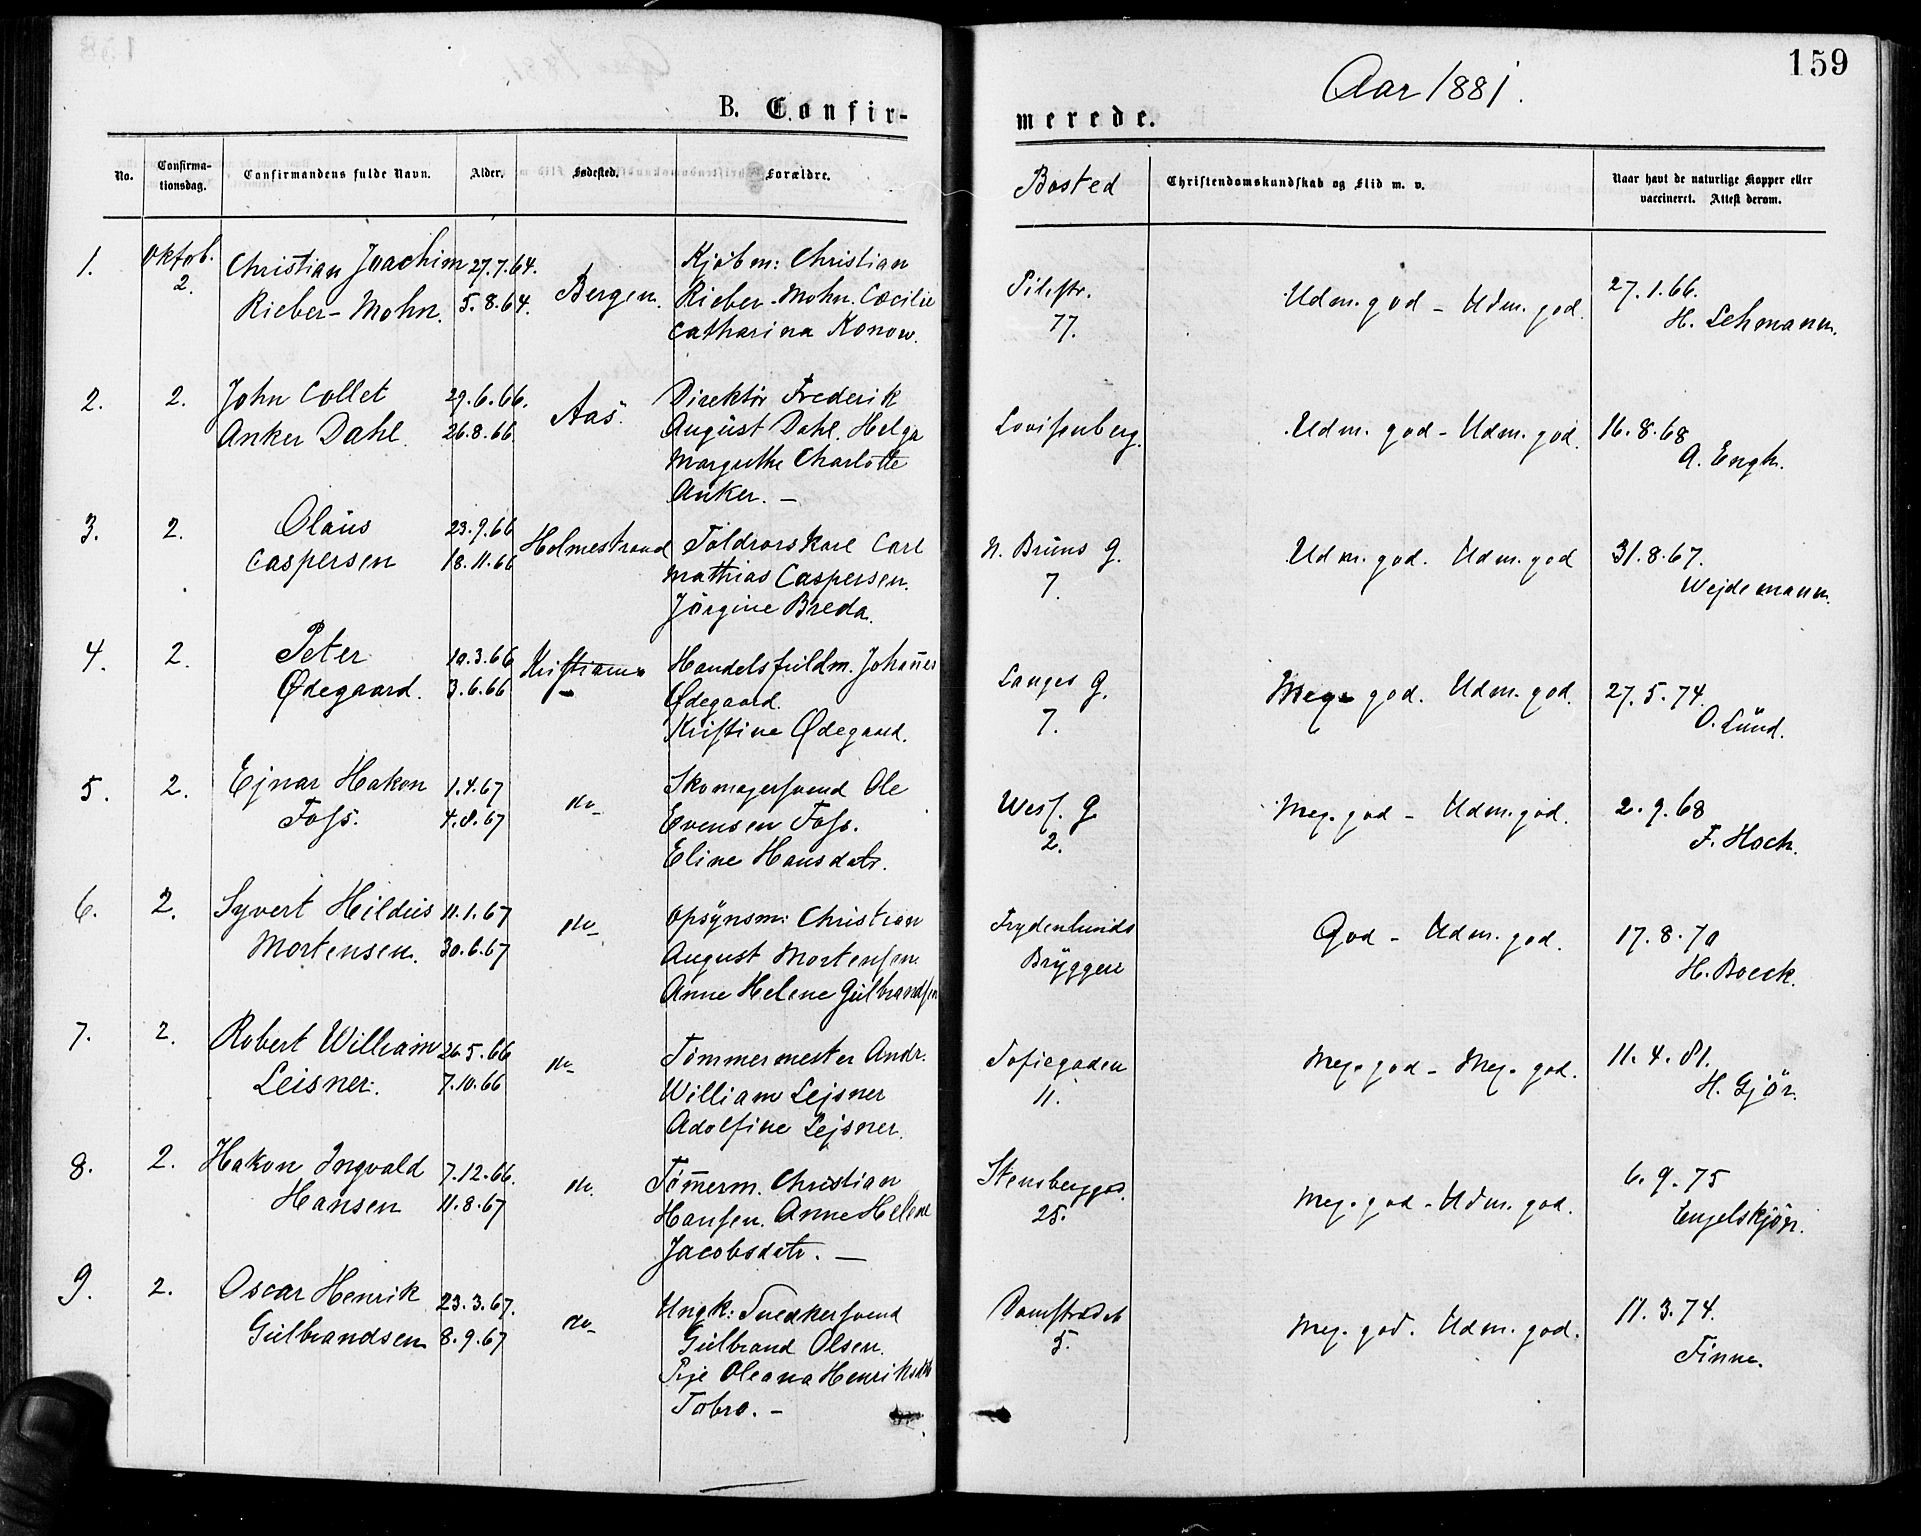 159
Aar 1881.
B. Confir-
merede.
No.
Confirma-
tionsdag.
Confirmandens fulde Navn.
Alder.
Fødested.
Forældre.
Bosted
Christendomskundskab og Flid m. v.
Naar havt de naturlige Kopper eller
vaccineret. Attest derom.
1.
Oktob.
2.
Christian Joachim
Rieber-Mohn.
27.7.64.
5.8.64.
Bergen.
Kjøbm: Christian
Rieber-Mohn. Cæcilie
Catharina Konow.
Pilestr.
77.
Udm. god - Udm. god.
27.1.66.
H. Lehmann.
2.
2.
John Collet
Anker Dahl.
29.6.66.
26.8.66
Aas.
Direktør Frederik
August Dahl. Helga
Margrethe Charlotte
Anker. -
Lovisenberg.
Udm. god - Udm. god.
16.8.68
A. Engh.
3.
2.
Olaus
Caspersen
23.9.66
18.11.66
Holmestrand
Toldrorskarl Carl
Mathias Caspersen.
Jörgine Breda.
N. Bruns G.
7.
Udm. god. Udm. god
31.8.67.
Wejdemann.
4.
2.
Peter
Ødegaard.
10.3.66
3.6.66
Kristiania
Handelsfuldm. Johannes
Ødegaard.
Kristine Ødegaard.
Langes G.
7.
Meg. god. Udm. god.
27.5.74.
O. Lund.
5.
2.
Ejnar Hakon
Foss.
1.4.67
4.8.67
do
Skomagersvend Ole
Evensen Foss.
Eline Hansdatr.
Wess. G
2.
Meg. god - Udm. god.
2.9.68
F. Hoch.
6.
2.
Syvert Hildus
Mortensen.
11.1.67
30.6.67
do
Opsynsm: Christian
August Mortensen.
Anne Helene Gulbrandsen
Frydenlunds
Bryggeri
God - Udm. god.
17.8.70
H. Boeck.
7.
2.
Robert William
Leisner.
26.5.66
7.10.66
do
Tømmermester Andr.
William Lejsner
Adolfine Lejsner.
Sofiegaden
11.
Meg. god - Meg. god.
11.4.81.
H. Gjör.
8.
2.
Hakon Ingvald
Hansen
7.12.66.
11.8.67
do.
Tømmerm. Christian
Hansen. Anne Helene
Jacobsdatr. -
Stensberggd.
25.
Meg. god - Udm. god.
6.9.75
Engelskjøn.
9.
2.
Oscar Henrik
Gulbrandsen
23.3.67.
8.9.67
do
Ungk: Snedkersvend
Gulbrand Olsen.
Pige Oleana Henriksdtr
Tobro. -
Damstrædet
5.
Meg. god. Udm. god.
17.3.74.
Finne.